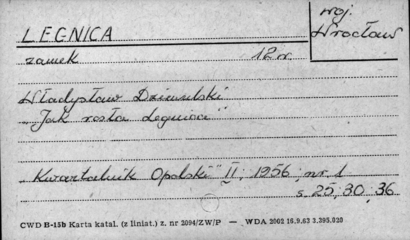 LEGNICA
woj.
Wrocław
zamek 12 w.
Władysław Dziewulski
"Jak rosła Legnica"
"Kwartalnik Opolski" II, 1956, nr. 1
s. 25, 30, 36
CWD B-15b Karta katal. (z liniat.) z. nr 2094/ZW/P — WDA 2002 16.9.63 3.393.020